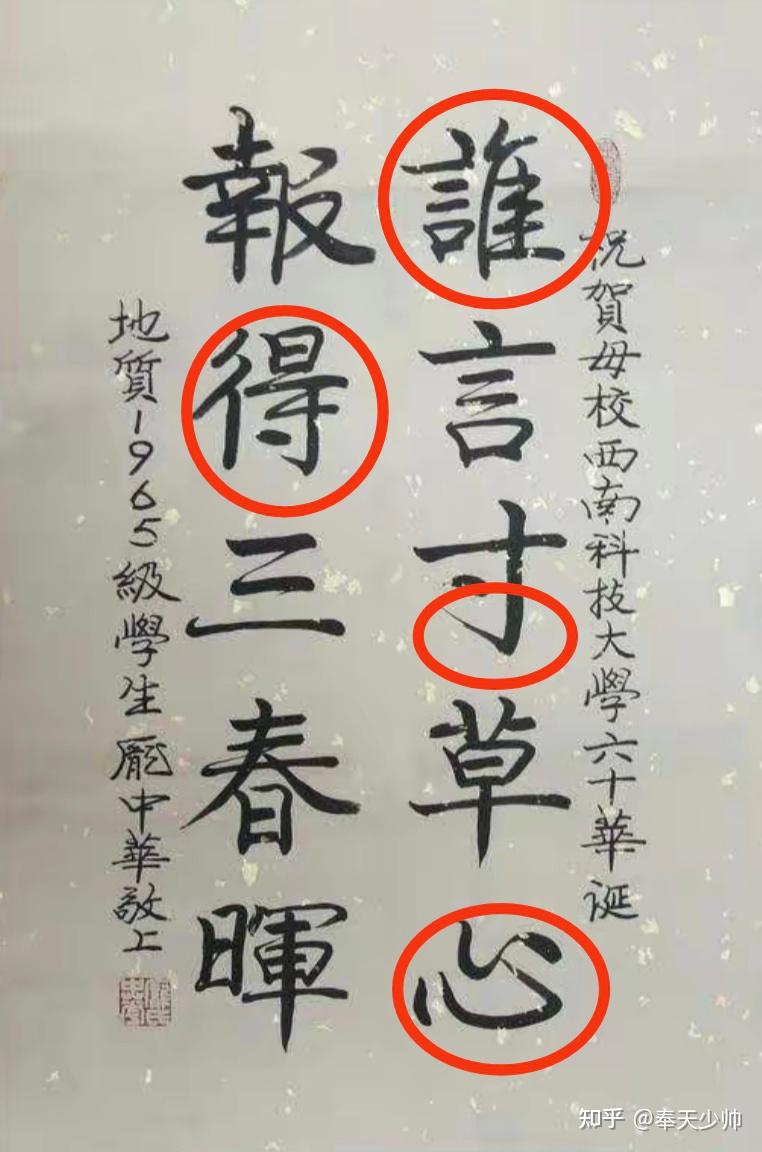 祝賀母校西南科技大學六十華誕
誰言寸草心
報得三春暉
地質1965級學生龐中華敬上
知乎 @奉天少帅